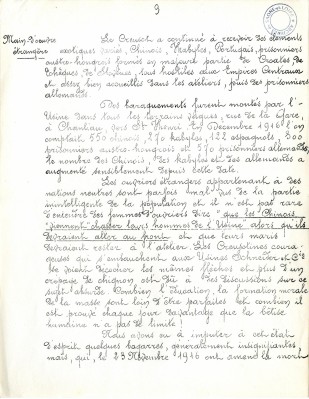 9
Main d'œuvre
étrangère
Le Creusot a continué à recevoir des éléments
exotiques variés, Chinois, Kabyles, Portugais, prisonniers
austro-hongrois formés en majeure partie de Croates, de
Tchèques, de Slovaques, tous hostiles aux Empires Centraux
et assez bien accueillis dans les ateliers, puis des prisonniers
allemands.
Des baraquements furent montés par l'
Usine dans tous les terrains vagues, rue de la Gare,
à Chanliau, quai St Henri. En Décembre 1916 l'on
comptait 550 chinois, 270 kabyles, 122 espagnols, 300
prisonniers austro-hongrois et 370 prisonniers allemands,
le nombre des Chinois, des kabyles et des allemands a
augmenté sensiblement depuis cette date.
Les ouvriers étrangers appartenant à des
nations neutres sont parfois mal vus de la partie
inintelligente de la population et il n'est pas rare
d'entendre des femmes d'ouvriers dire "que les Chinois
viennent chasser leurs hommes de l'Usine alors qu'ils
devraient aller au front et que leurs maris
devraient rester à l'atelier. Les Creusotines coura-
geuses qui s'embauchent aux Usines Schneider et Cie
se voient décocher les mêmes flèches et plus d'un
crêpage de chignon est dû à des discussions sur ce
sujet absurde. Combien l'éducation, la formation morale
de la masse sont loin d'être parfaites et combien il
est prouvé chaque jour davantage que la bêtise
humaine n'a pas de limite !
Nous avons eu à imputer à cet état
d'esprit quelques bagarres, généralement insignifiantes,
mais, qui, le 23 Novembre 1916 ont amené la mort